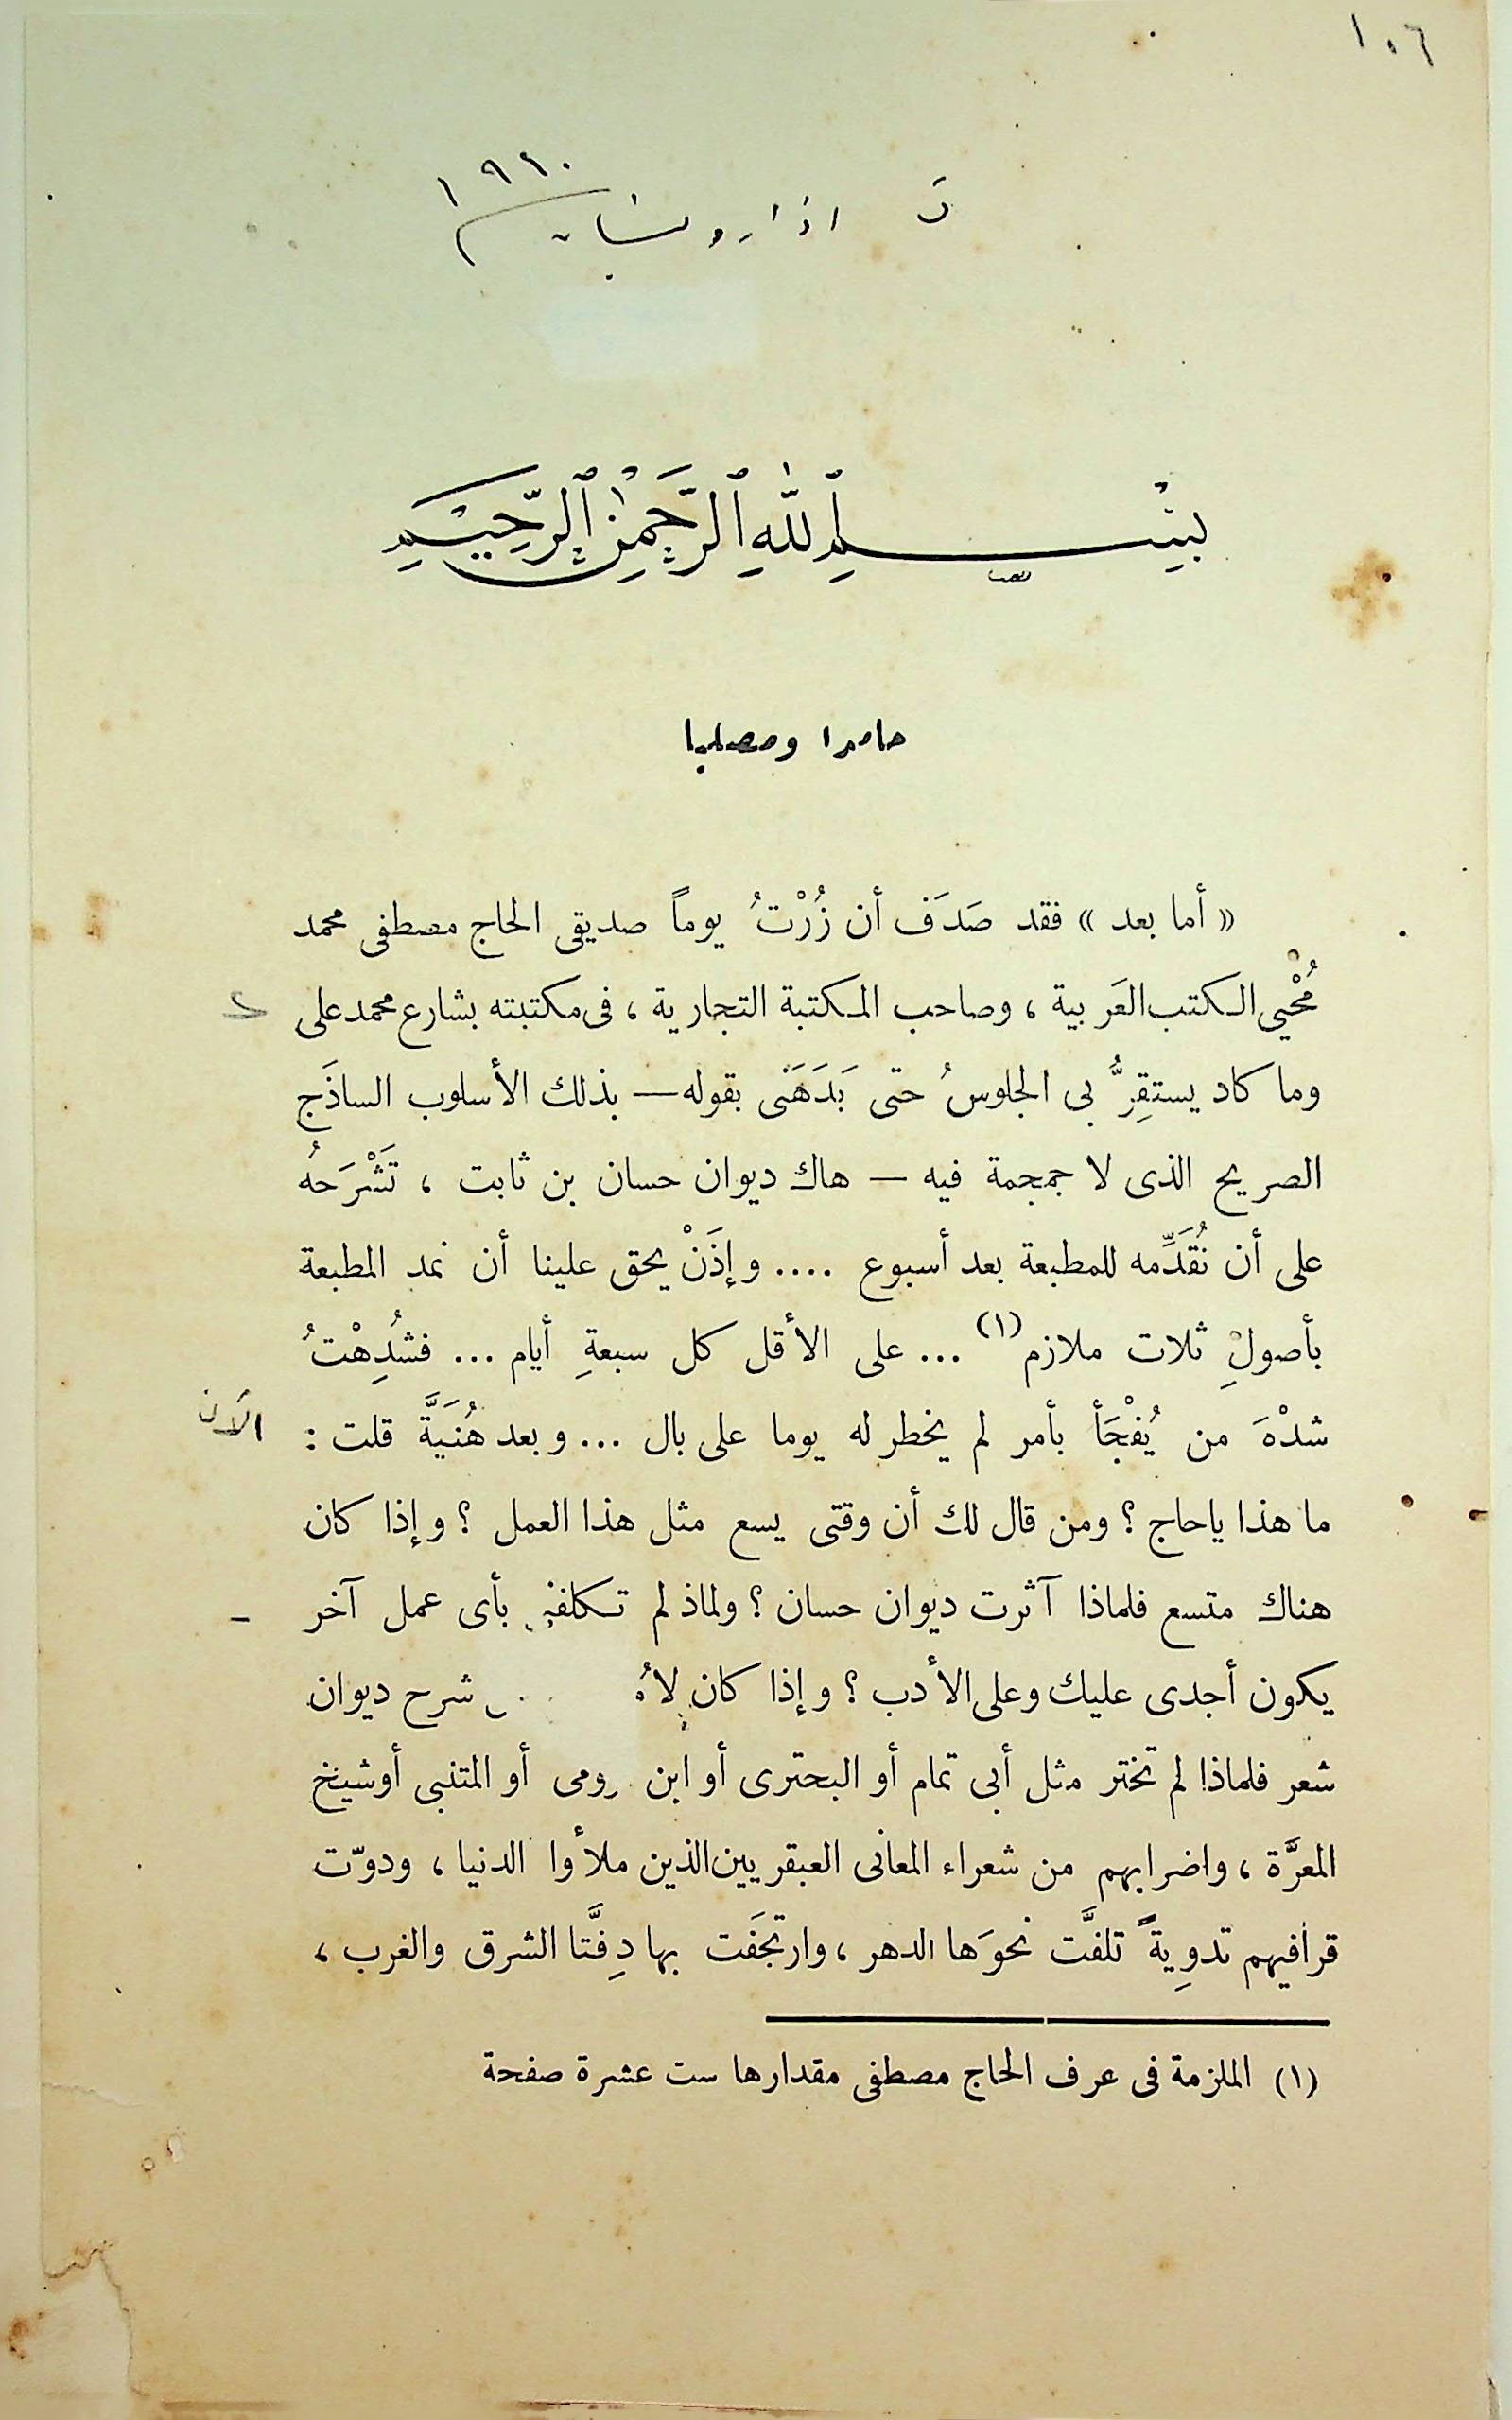 ١٠٦
١٩٦٠
ت اذار ونيسان
بِسْمِ ٱللَّهِ ٱلرَّحْمٰنِ ٱلرَّحِيمِ
حامدا ومصليا
« أما بعد » فقد صَدَف أن زُرْتُ يوماً صديقى الحاج مصطفى محمد
مُحْيي الكتب العَربية ، وصاحب المكتبة التجارية ، فى مكتبته بشارع محمد على
وما كاد يستقِرُّ بى الجلوسُ حتّى بَدَهَنى بقوله — بذلك الأسلوب الساذَج
الصريح الذى لا جمجمة فيه — هاك ديوان حسان بن ثابت ، تَشْرَحهُ
على أن نُقَدِّمه للمطبعة بعد أسبوع .... وإذَنْ يحق علينا أن نمد المطبعة
بأصولِ ثلاث ملازم (١) ... على الأقل كل سبعةِ أيام ... فشُدِهْتُ
شدْهَ من يُفْجَأ بأمر لم يخطر له يوما على بال ... وبعد هُنَيَّة قلت : الآن
ما هذا ياحاج ؟ ومن قال لك أن وقتى يسع مثل هذا العمل ؟ وإذا كان
هناك متسع فلماذا آثرت ديوان حسان ؟ ولماذ لم تكلفنى بأى عمل آخر
يكون أجدى عليك وعلى الأدب ؟ وإذا كان شرح ديوان
شعر فلماذا لم تختر مثل أبى تمام أو البحترى أو ابن رومى أو المتنبى أو شيخ
المعرَّة ، واضرابهم من شعراء المعانى العبقريين الذين ملأوا الدنيا ، ودوّت
قرافيهم تدوِيةً تلفَّت نحوَها الدهر ، وارتجَفَت بها دِفَّتا الشرق والغرب ،
(١) الملزمة فى عرف الحاج مصطفى مقدارها ست عشرة صفحة